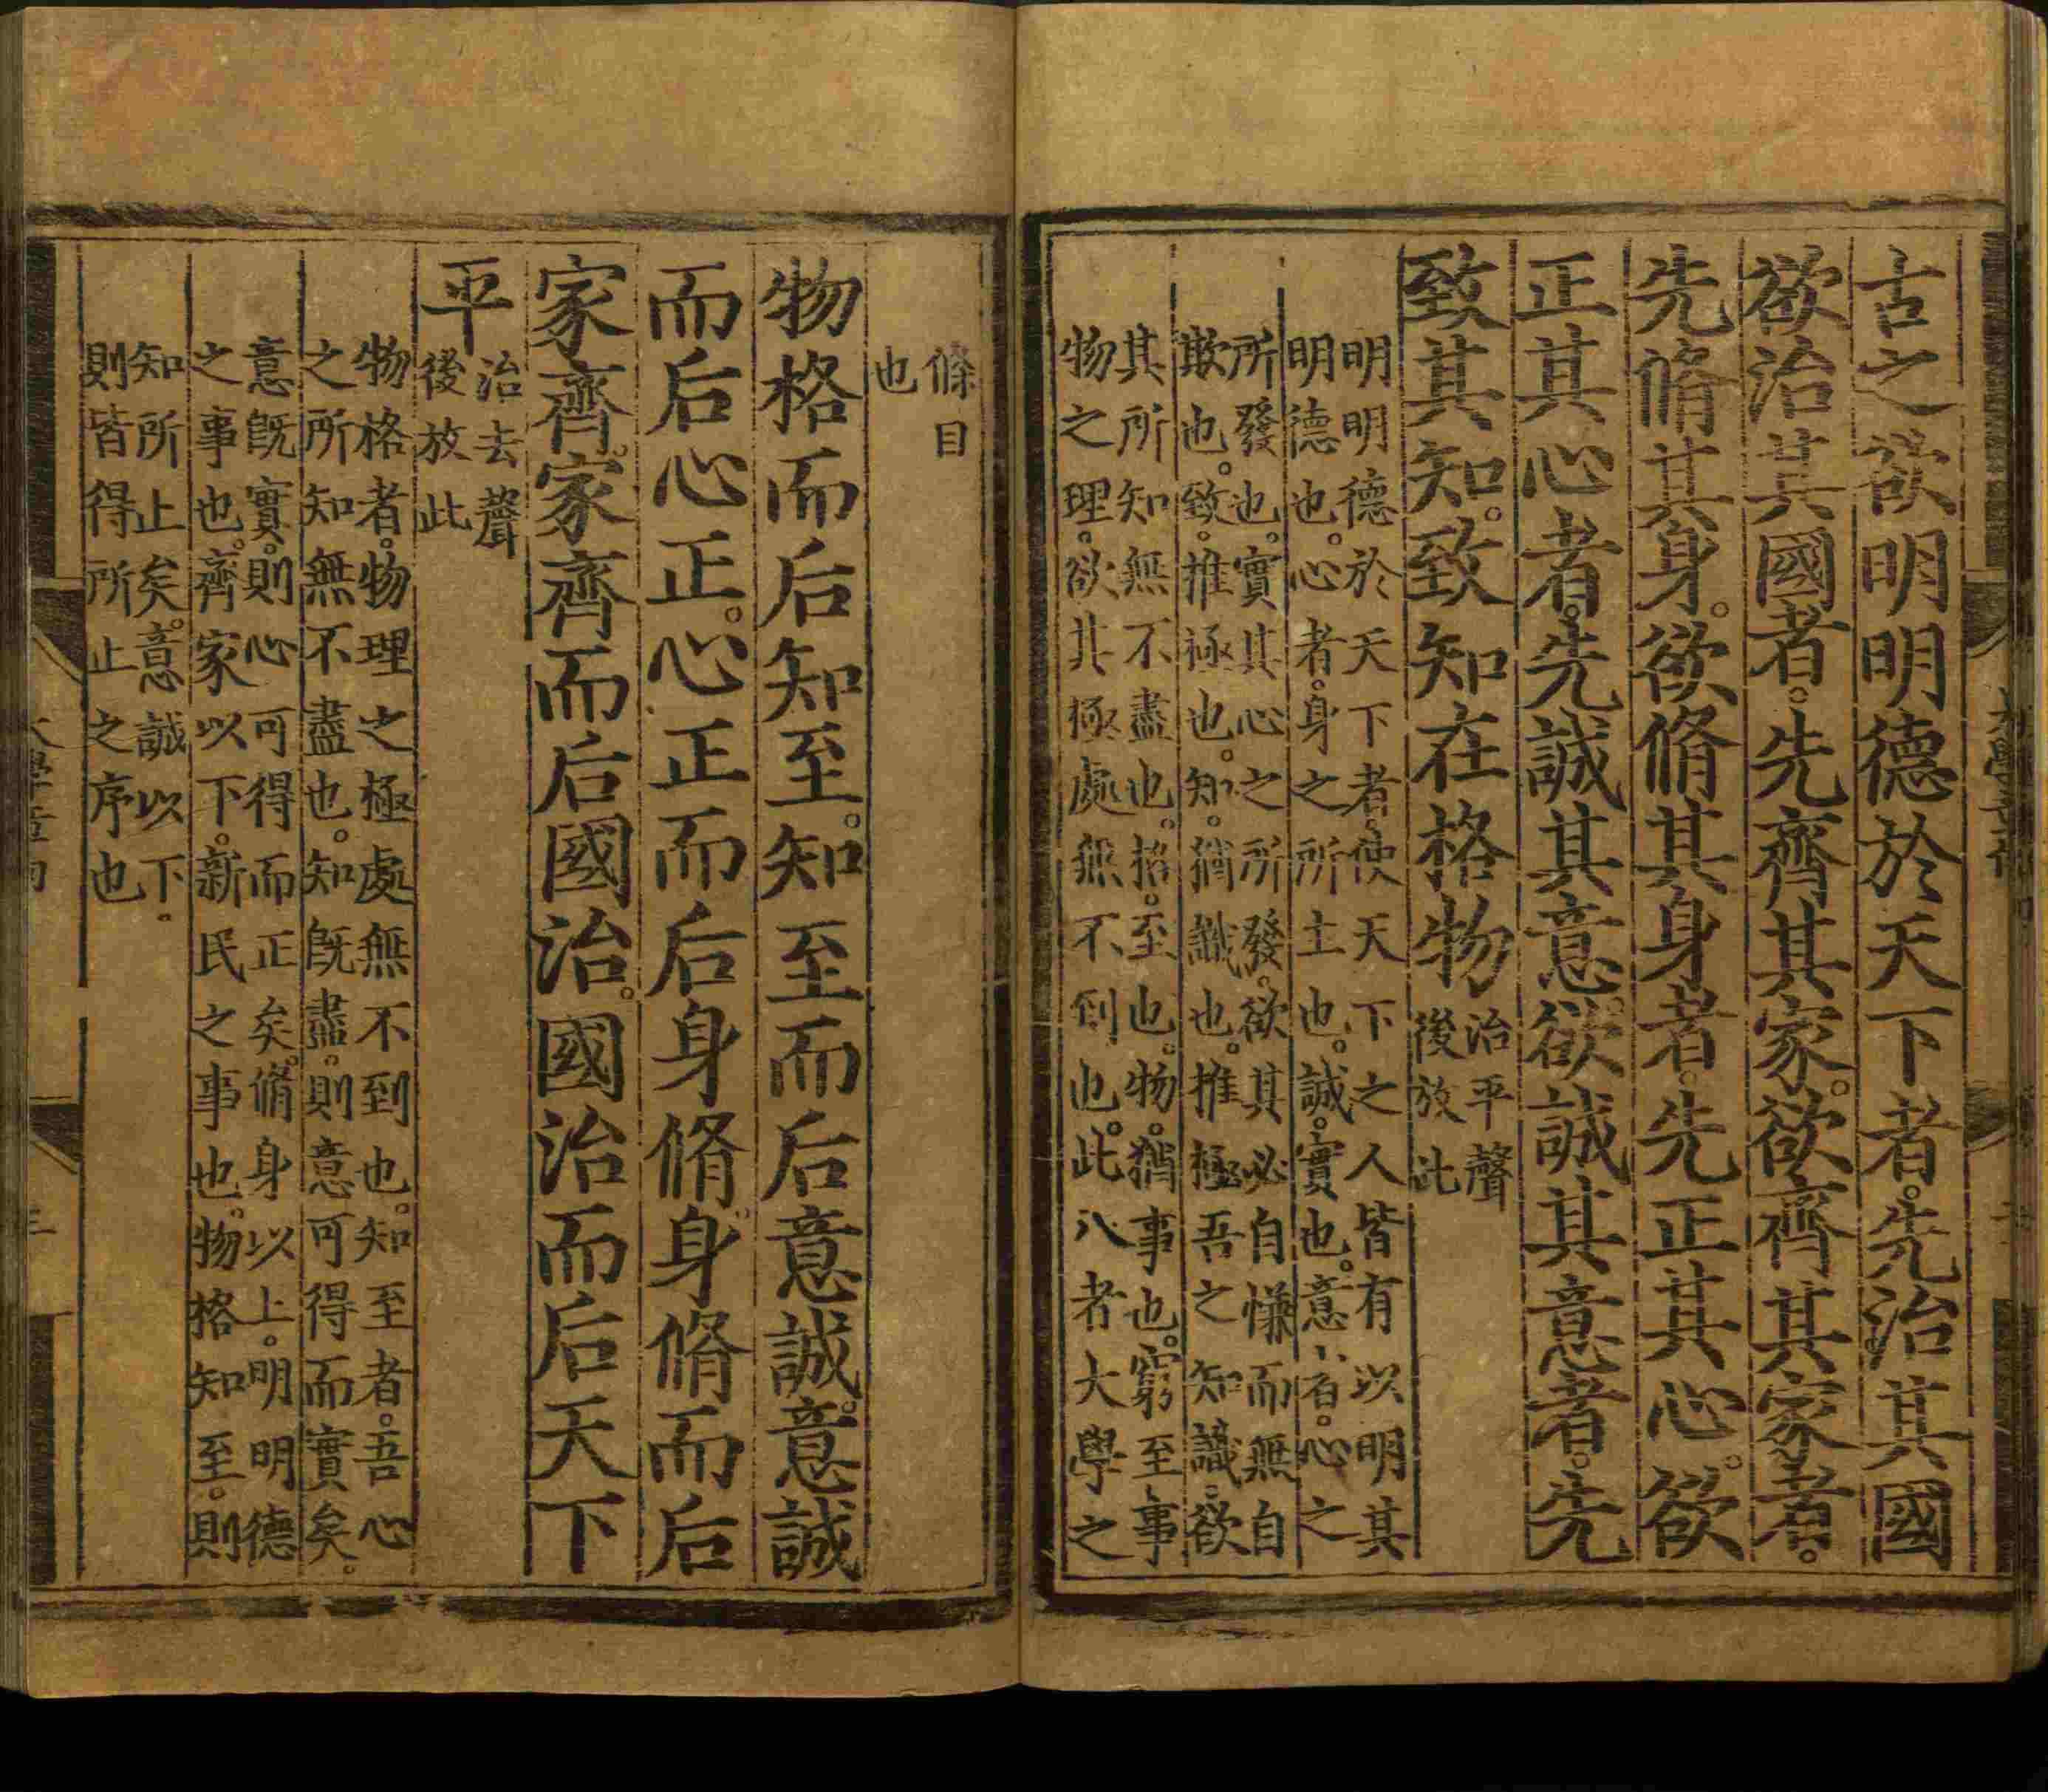 古之欲明明德於天下者。先治其國
欲治其國者。先齊其家。欲齊其家者。
先脩其身。欲脩其身者。先正其心。欲
正其心者。先誠其意。欲誠其意者。先
致其知。致知在格物
治平聲
後放此
明明德於天下者。使天下之人皆有以明其
明德也。心者。身之所主也。誠。實也。意者。心之
所發也。實其心之所發。欲其必自慊而無自
欺也。致。推極也。知。猶識也。推極吾之知識。欲
其所知無不盡也。格。至也。物。猶事也。窮至事
物之理。欲其極處無不到也。此八者大學之
條目
也
物格而后知至。知至而后意誠。意誠
而后心正。心正而后身脩。身脩而后
家齊。家齊而后國治。國治而后天下
平
治去聲
後放此
物格者。物理之極處無不到也。知至者。吾心
之所知無不盡也。知既盡。則意可得而實矣。
意既實。則心可得而正矣。脩身以上。明明德
之事也。齊家以下。新民之事也。物格知至。則
知所止矣。意誠以下。
則皆得所止之序也